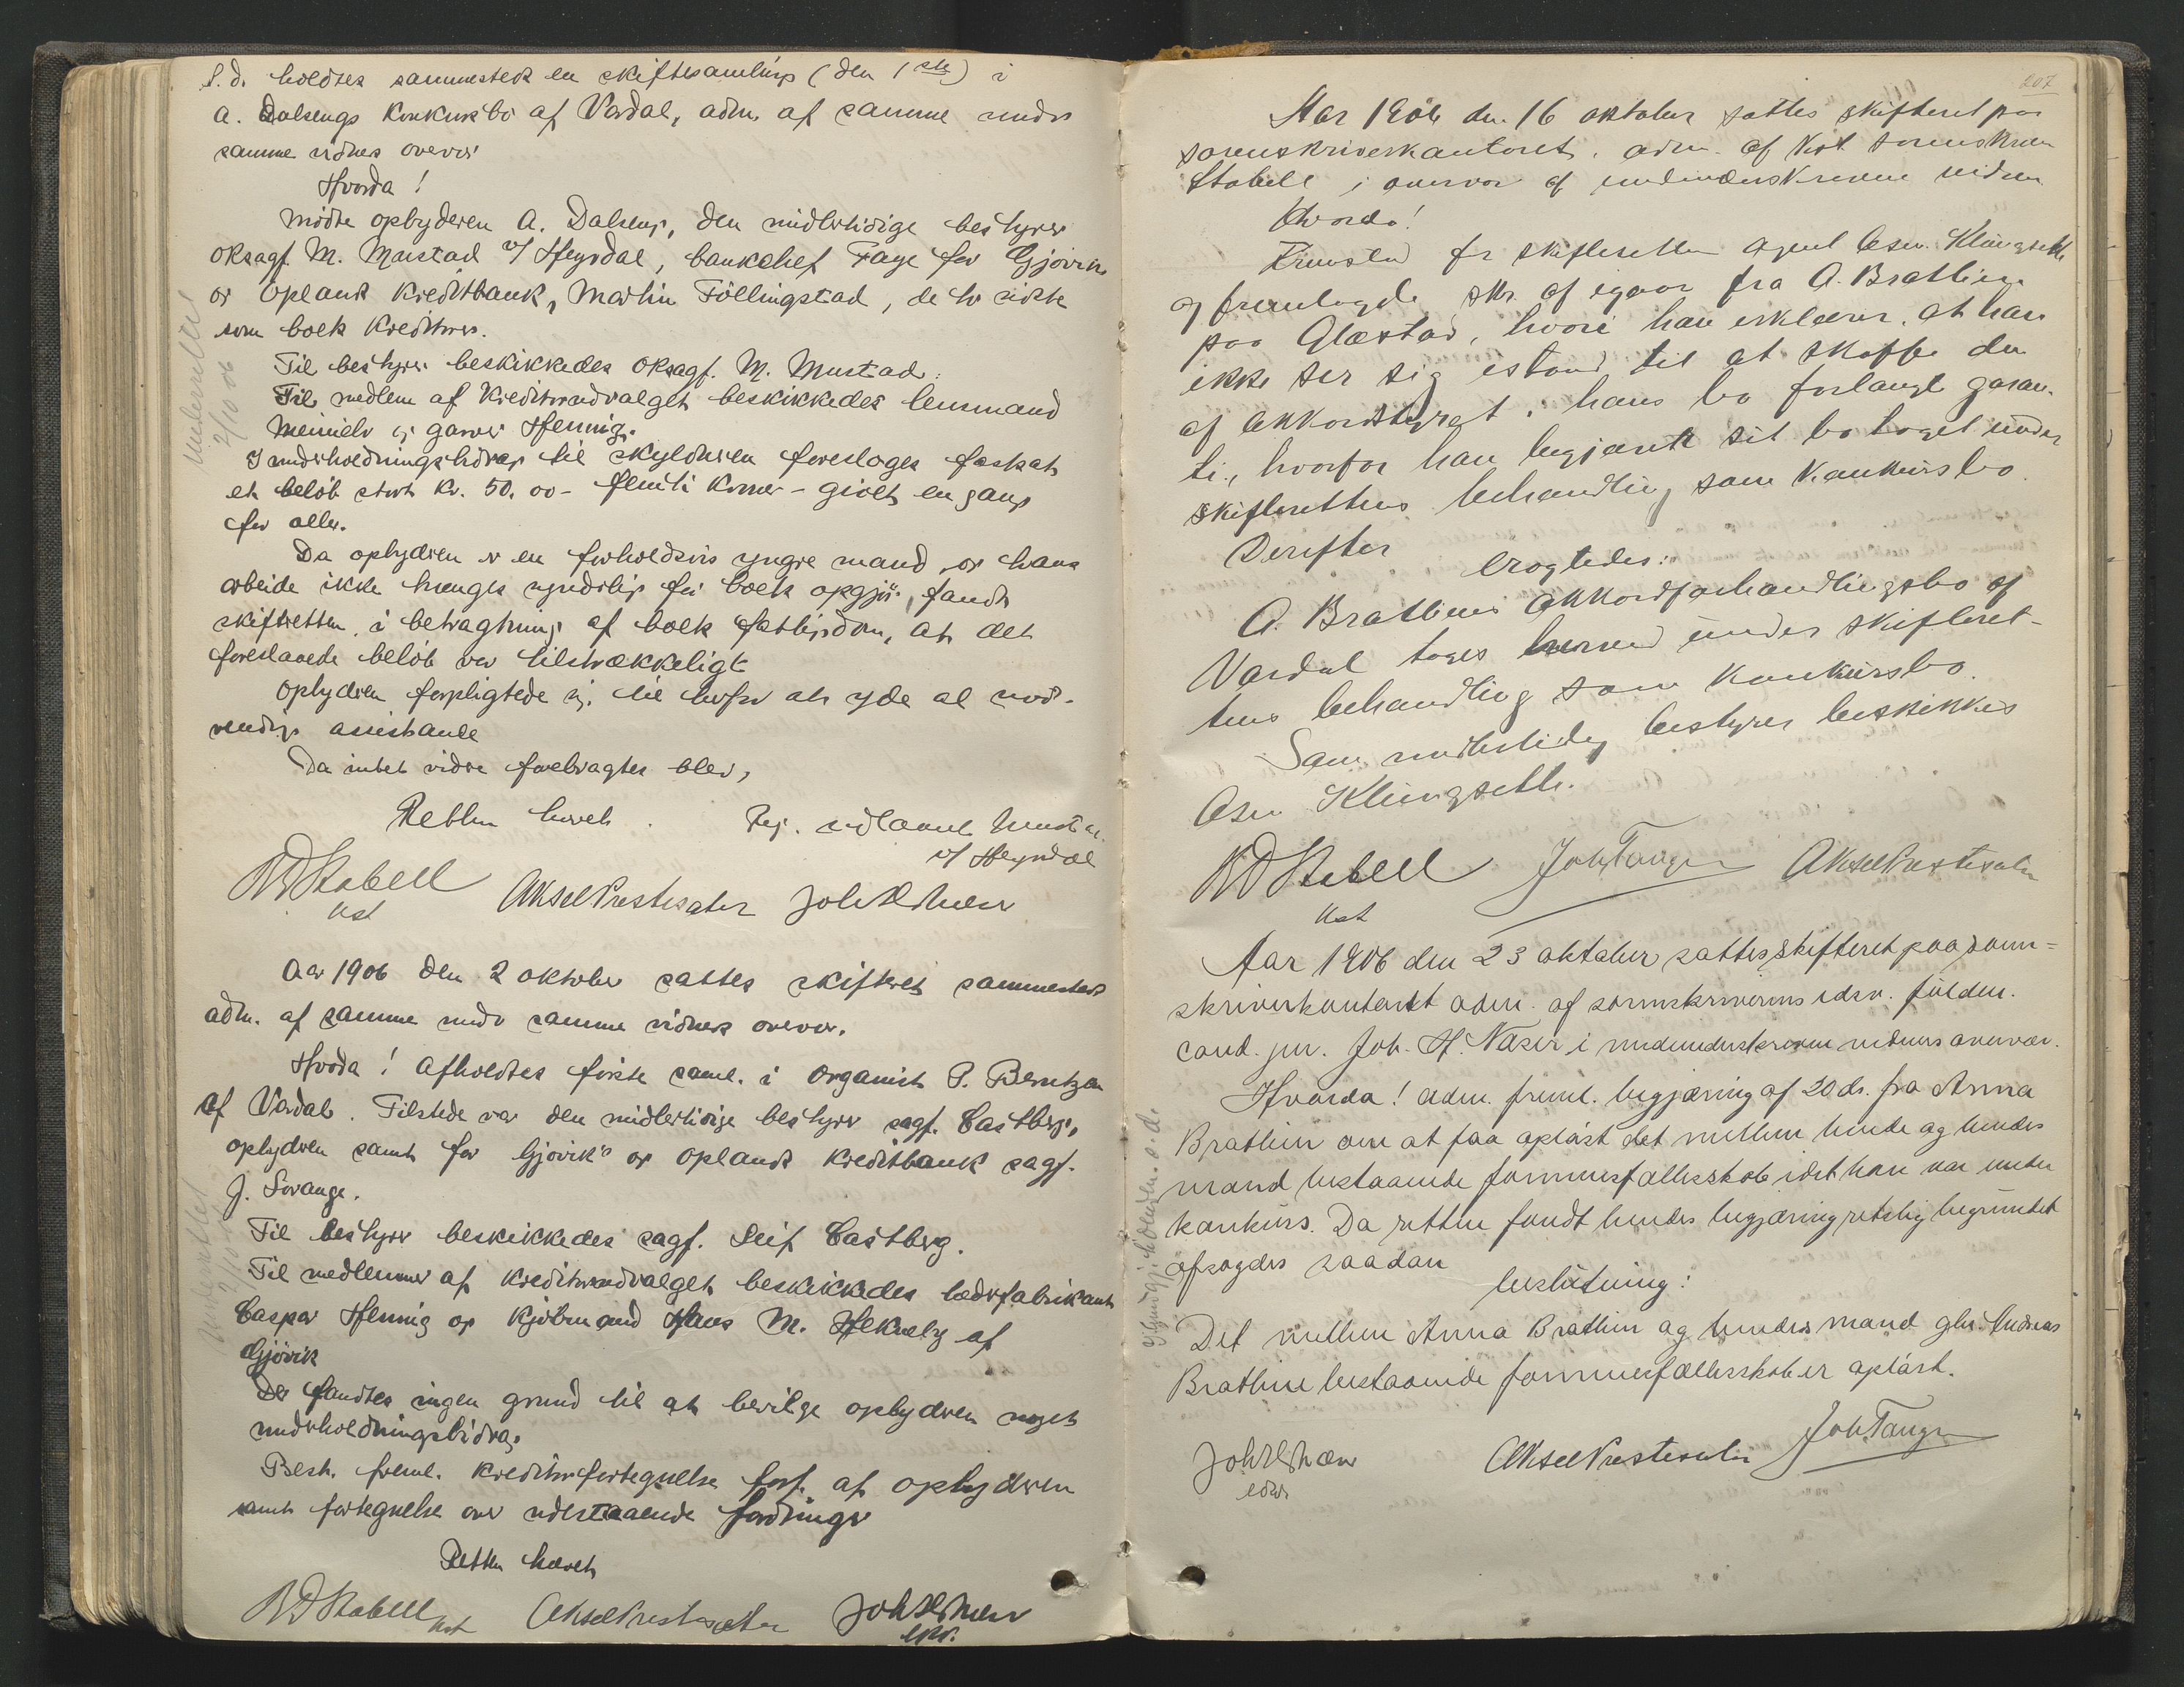 S. d. holdtes sammesteds en skiftesamling (den 1ste) i
A. Dalsengs konkursbo af Vardal, adm. af samme under
samme vidners overvær
Hvorda!
mødte opbyderen A. Dalseng, den midlertidige bestyrer
oksagf. M. Mustad v/ Heyrdal, bankchef Faye for Gjøviks
og Oplands Kreditbank, Martin Föllingstad, de to sidste
som boets kreditorer.
Til bestyrer beskikkedes oksagf. M. Mustad.
Til medlem af kreditorudvalget beskikkedes lensmand
og garver Hennig.
I underholdningsbidrag til skyldneren foresloges fastsat
et beløb stort kr. 50.00 - femti kroner - givet en gang
for alle.
Da opbyderen er en forholdsvis yngre mand og hans
arbeide ikke trænges synderlig for boets opgjør, fandt
skifteretten i betragtning af boets fattigdom, at det
foreslaaede beløb var tilstrækkeligt
Opbyderen forpligtede sig til herfor at yde al nød-
vendig assistance
Da intet videre foretagtes blev,
Retten hævet. Beg. udlaant Mustad
v/ Heyrdal
Stabell
kst
Aksel Prestesater Joh H Næser
Aar 1906 den 2 oktober sattes skifteret sammesteds
adm. af samme under samme vidners overvær.
Hvorda! Afholdtes første saml. i organist P. Berntzen
af Vardal. Tilstede var den midlertidige bestyrer sagf. Castberg,
opbyderen samt for Gjøvik's og Oplands kreditbank sagf.
J. Sorange.
Til bestyrer beskikkedes sagf. Leif Castberg.
Til medlemmer af kreditorudvalget beskikkedes læderfabrikant
Caspar Hennig og kjøbmand Hans M. af
Gjøvik
Der fandtes ingen grund til at bevilge opbyderen noget
underholdningsbidrag.
Best. freml. kreditorfortegnelse forf. af opbyderen
samt fortegnelse over udestaaende fordringer
Retten hævet
Stabell kst Aksel Prestesater Joh H Næser
edsv.
207
Aar 1906 den 16 oktober sattes skifteret paa
sorenskriverkontoret, adm. af kst sorenskriver
Stabell i overvær af undertegnede vidner
Hvorda!
Fremstod for skifteretten agent Osv. Klungseth
og fremlagde skr. af igaar fra A. Brathien
paa Glæstad, hvori han erklærer, at han
ikke ser sig istand til at skaffe den
af akkordstyret i hans bo forlangt garan-
ti, hvorfor han begjærte sit bo taget under
skifterettens behandling som konkursbo.
Derefter
besluttedes:
A. Brathiens akkordforhandlingsbo af
Vardal tages herved under skifteret-
tens behandling som konkursbo.
Som midlertidig bestyrer beskikkes
Osv. Klungseth.
Stabell
kst
Joh Tangen Aksel Prestesater
Aar 1906 den 23 oktober sattes skifteret paa soren=
skriverkontoret adm. af sorenskriverens edsv. fuldm.
cand. jur. Joh. H. Næser i undertegnede vidners overvær.
Hvorda! adm. freml. begjæring af 20 ds. fra Anna
Brathien om at faa opløst det mellem hende og hendes
mand bestaaende formuesfællesskab idet han var under
konkurs. Da retten fandt hendes begjæring retslig begrundet
afsagdes saadan
beslutning:
Det mellem Anna Brathien og hendes mand Andreas
Brathien bestaaende formuesfællesskab er opløst.
Joh H Næser
edsv
Aksel Prestesater Joh Tangen